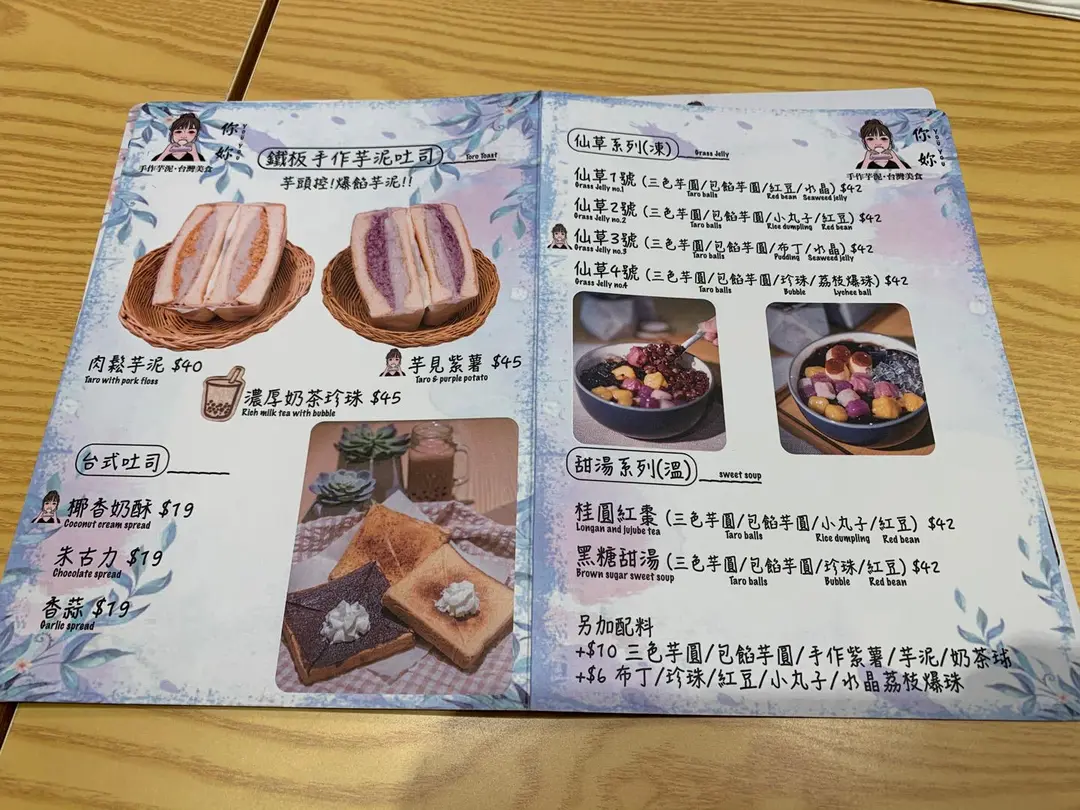 你妳
YOU YOU
手作芋泥·台灣美食
鐵板手作芋泥吐司
Toro Toast
芋頭控!爆餡芋泥!!
肉鬆芋泥 $40
Taro with pork floss
芋見紫薯 $45
Taro & purple potato
濃厚奶茶珍珠 $45
Rich milk tea with bubble
台式吐司
椰香奶酥 $19
Coconut cream spread
朱古力 $19
Chocolate spread
香蒜 $19
Garlic spread
你妳
YOU YOU
手作芋泥·台灣美食
仙草系列(凍)
Grass Jelly
仙草1號 (三色芋圓/包餡芋圓/紅豆/水晶) $42
Grass Jelly no.1 Taro balls Red bean Seaweed jelly
仙草2號 (三色芋圓/包餡芋圓/小丸子/紅豆) $42
Grass Jelly no.2 Taro balls Rice dumpling Red bean
仙草3號 (三色芋圓/包餡芋圓/布丁/水晶) $42
Grass Jelly no.3 Taro balls Pudding Seaweed jelly
仙草4號 (三色芋圓/包餡芋圓/珍珠/荔枝爆珠) $42
Grass Jelly no.4 Taro balls Bubble Lychee ball
甜湯系列(溫)
sweet soup
桂圓紅棗 (三色芋圓/包餡芋圓/小丸子/紅豆) $42
Longan and jujube tea Taro balls Rice dumpling Red bean
黑糖甜湯 (三色芋圓/包餡芋圓/珍珠/紅豆) $42
Brown sugar sweet soup Taro balls Bubble Red bean
另加配料
+$10 三色芋圓/包餡芋圓/手作紫薯/芋泥/奶茶球
+$6 布丁/珍珠/紅豆/小丸子/水晶荔枝爆珠